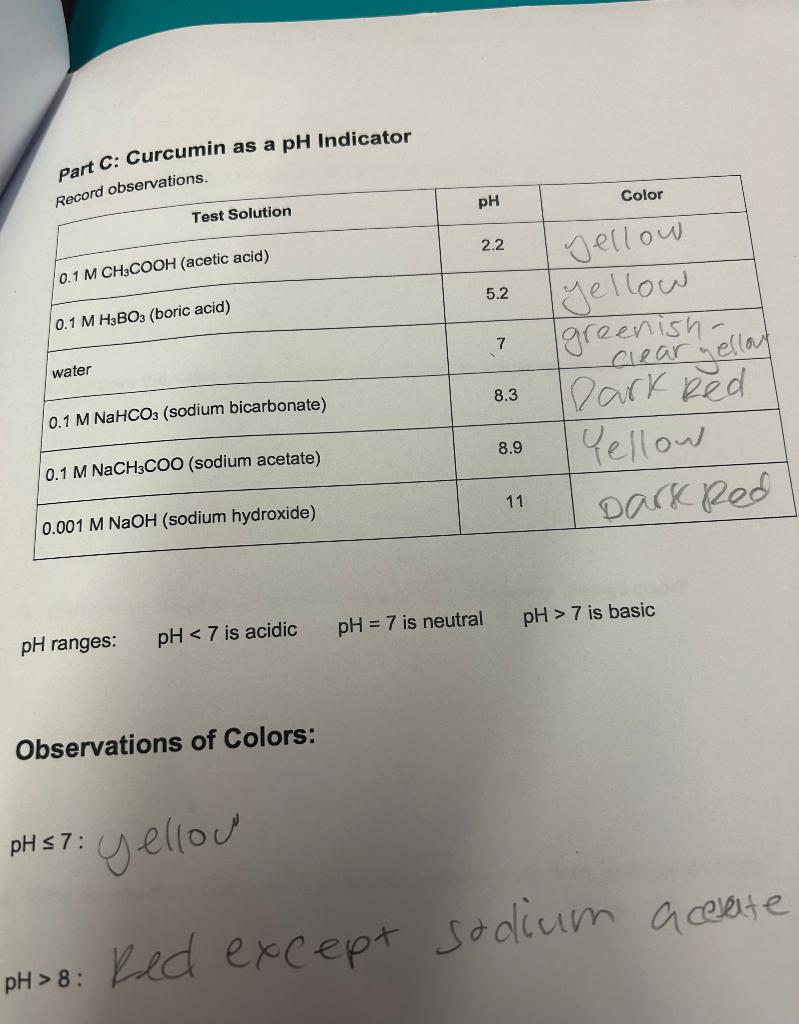 Part C: Curcumin as a pH Indicator
Record observations.
Test Solution pH Color
0.1 M CH₃COOH (acetic acid) 2.2 yellow
0.1 M H₃BO₃ (boric acid) 5.2 yellow
water 7 greenish-
clear yellow
0.1 M NaHCO₃ (sodium bicarbonate) 8.3 Dark Red
0.1 M NaCH₃COO (sodium acetate) 8.9 Yellow
0.001 M NaOH (sodium hydroxide) 11 Dark Red
pH ranges: pH < 7 is acidic pH = 7 is neutral pH > 7 is basic
Observations of Colors:
pH ≤ 7: yellow
pH > 8: Red except sodium acetate